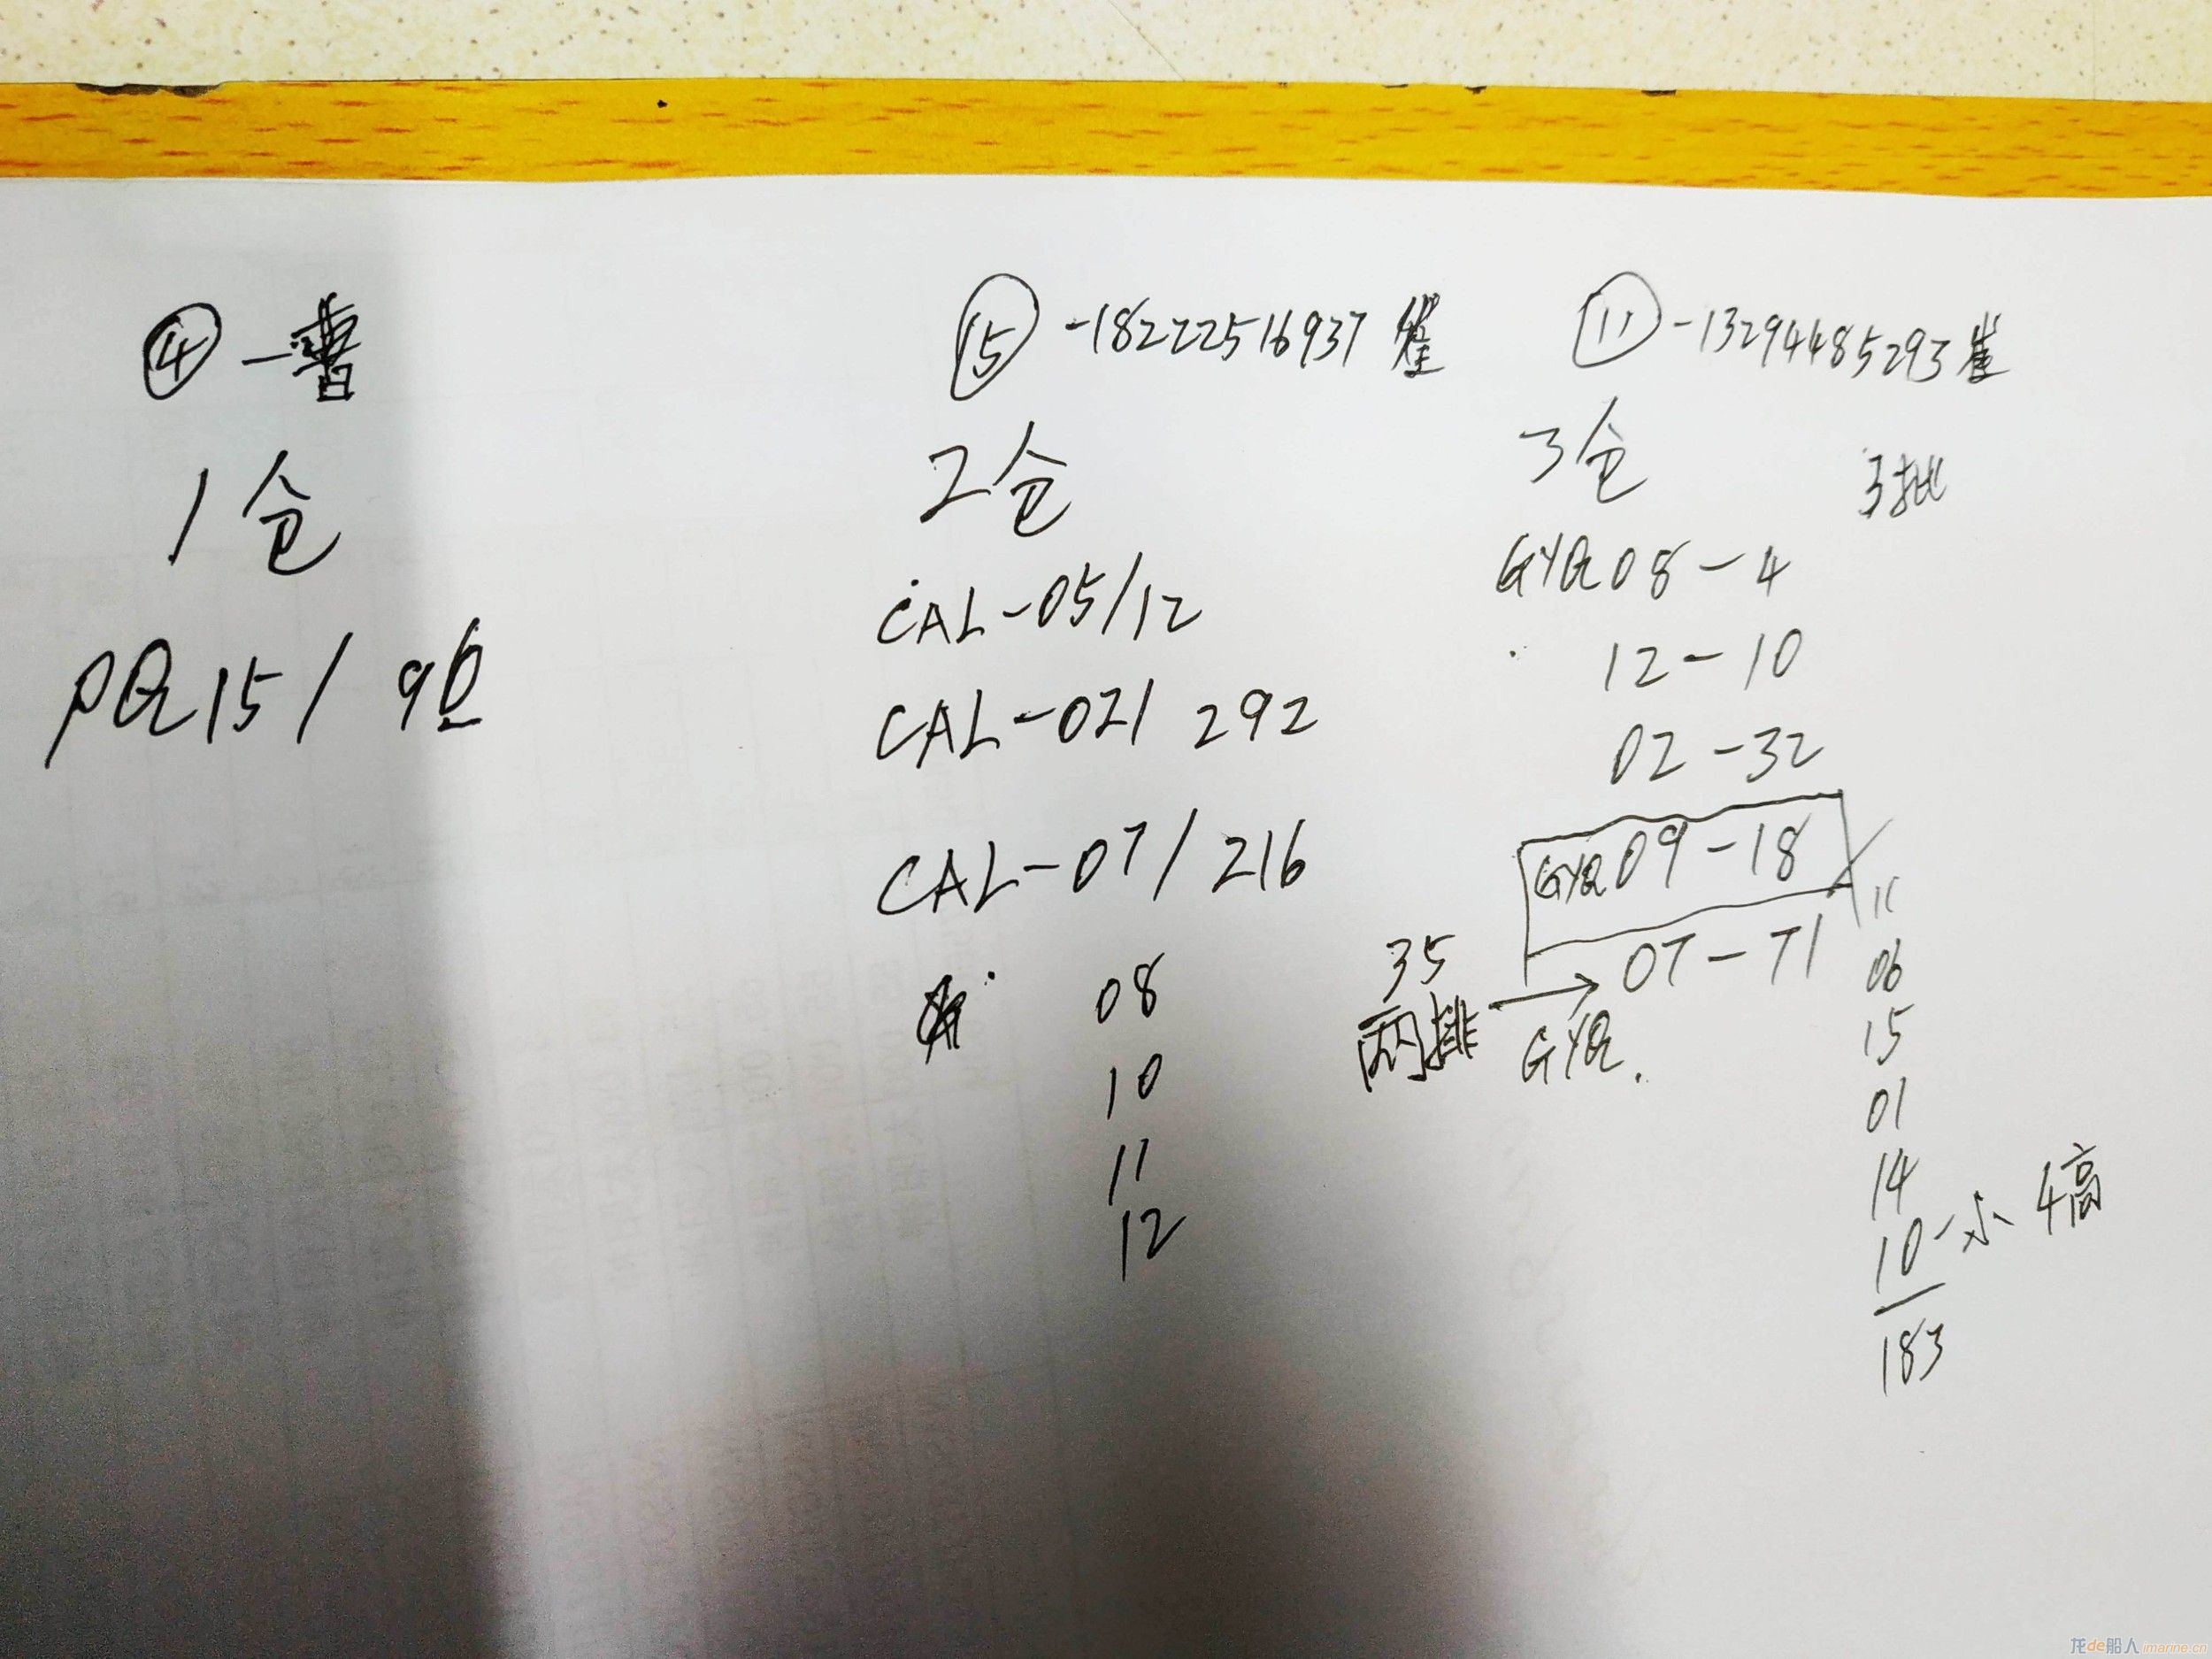 ④-曹
1仓
PQ15/ 96
⑮-18222516937 崔
2仓
CAL-05/12
CAL-02/ 292
CAL-07/ 216
08
10
11
12
⑪-13294485293崔
3仓
3批
GYQ08-4
12-10
02-32
GYQ09-18
07-71
35
两排
GYQ.
11
06
15
01
14
10-小 4高
183
龙de船人 imarine.cn